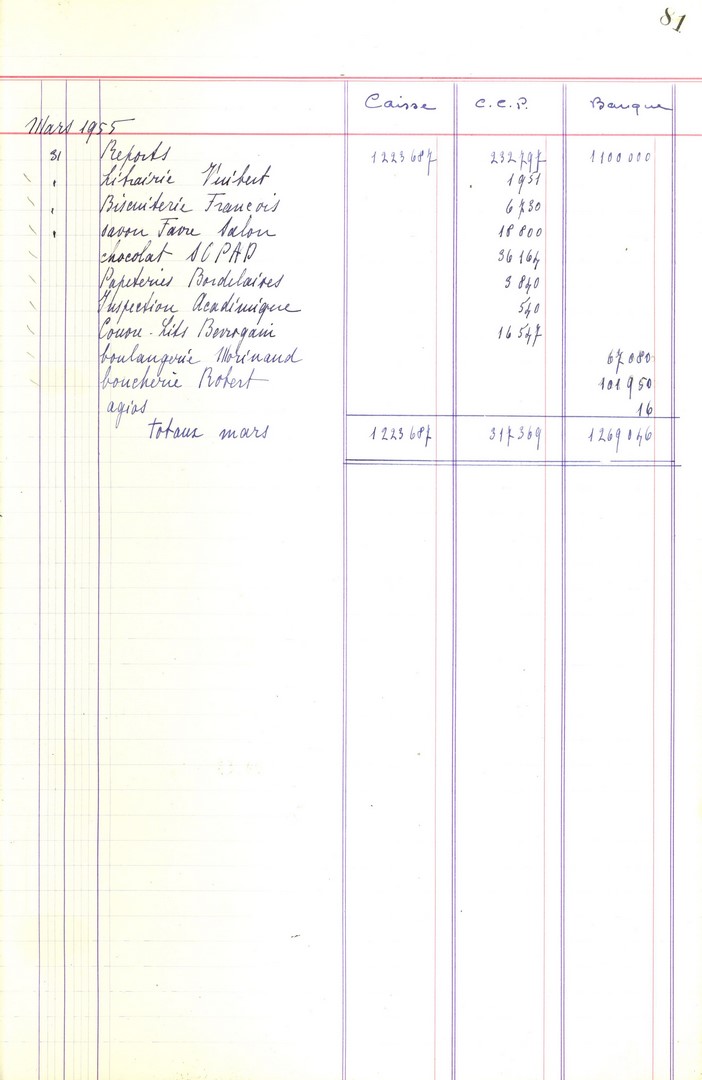 81
Caisse C.C.P. Banque
Mars 1955
31 Reports 1223687 232797 1100000
Librairie Vuibert 1951
Biscuiterie François 6730
savon Favre Salon 18800
chocolat SCPAD 36164
Papeteries Bordelaises 3840
Inspection Académique 540
Lits 16547
boulangerie Morinaud 67080
boucherie Robert 101950
agios 16
totaux mars 1223687 317369 1269046